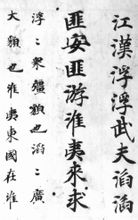 江漢浮浮武夫滔滔
匪安匪游淮夷來求
浮〻衆彊䫉也滔〻廣
大䫉也淮夷東國在淮